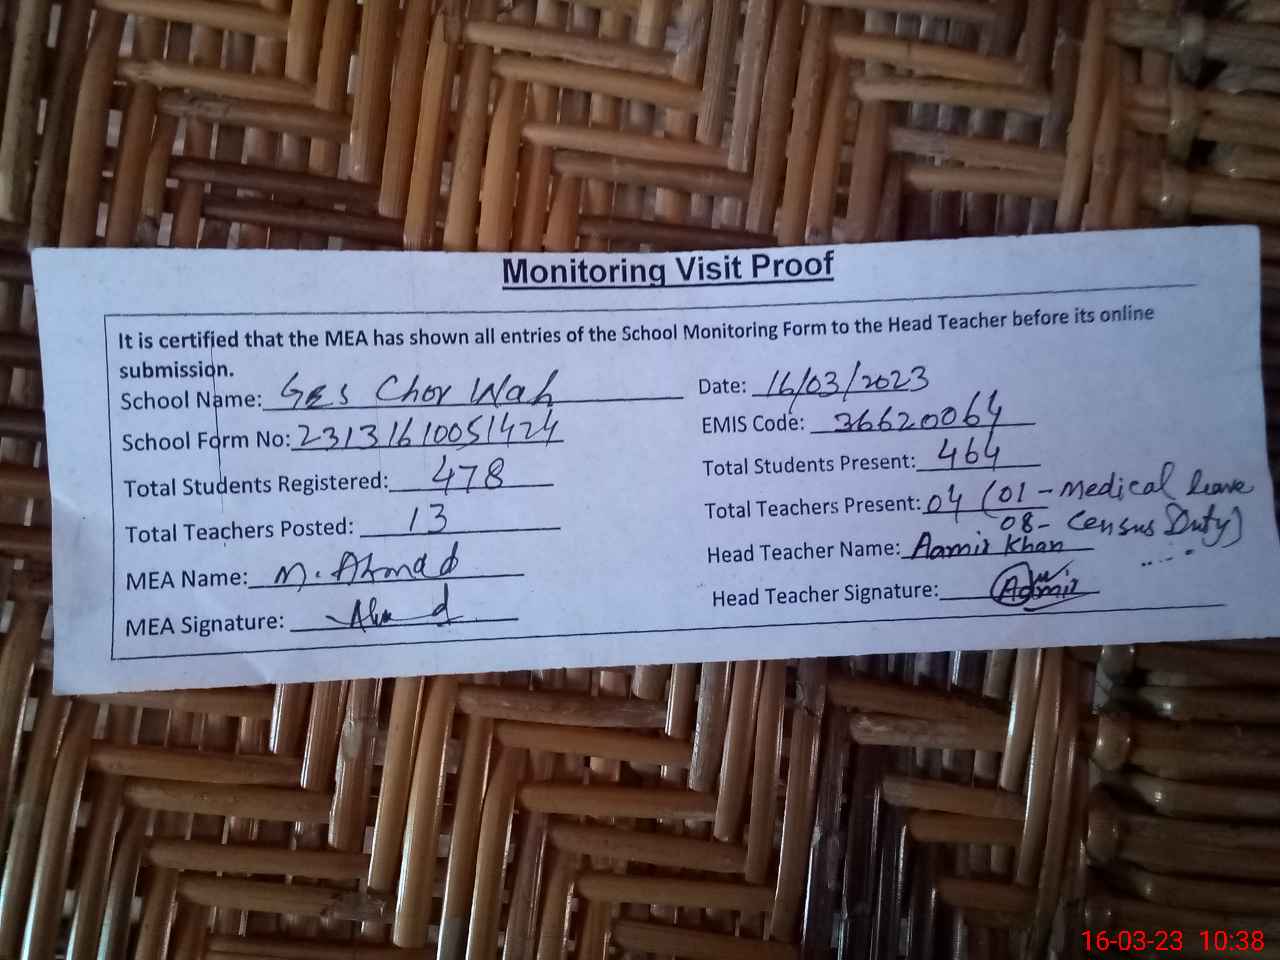 Monitoring Visit Proof
It is certified that the MEA has shown all entries of the School Monitoring Form to the Head Teacher before its online
submission.
School Name: GES Chor Wah
Date: 16/03/2023
School Form No: 23131610051424
EMIS Code: 36620064
Total Students Registered: 478
Total Students Present: 464
Total Teachers Posted: 13
Total Teachers Present: 04 (01 - Medical leave
08 - Census Duty)
MEA Name: M. Ahmad
Head Teacher Name: Aamir Khan
MEA Signature: Ahmad
Head Teacher Signature: Aamir
16-03-23 10:38